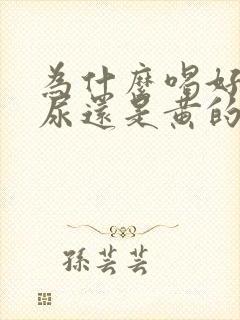 為什麼喝好
尿還是黃的
孫芸芸